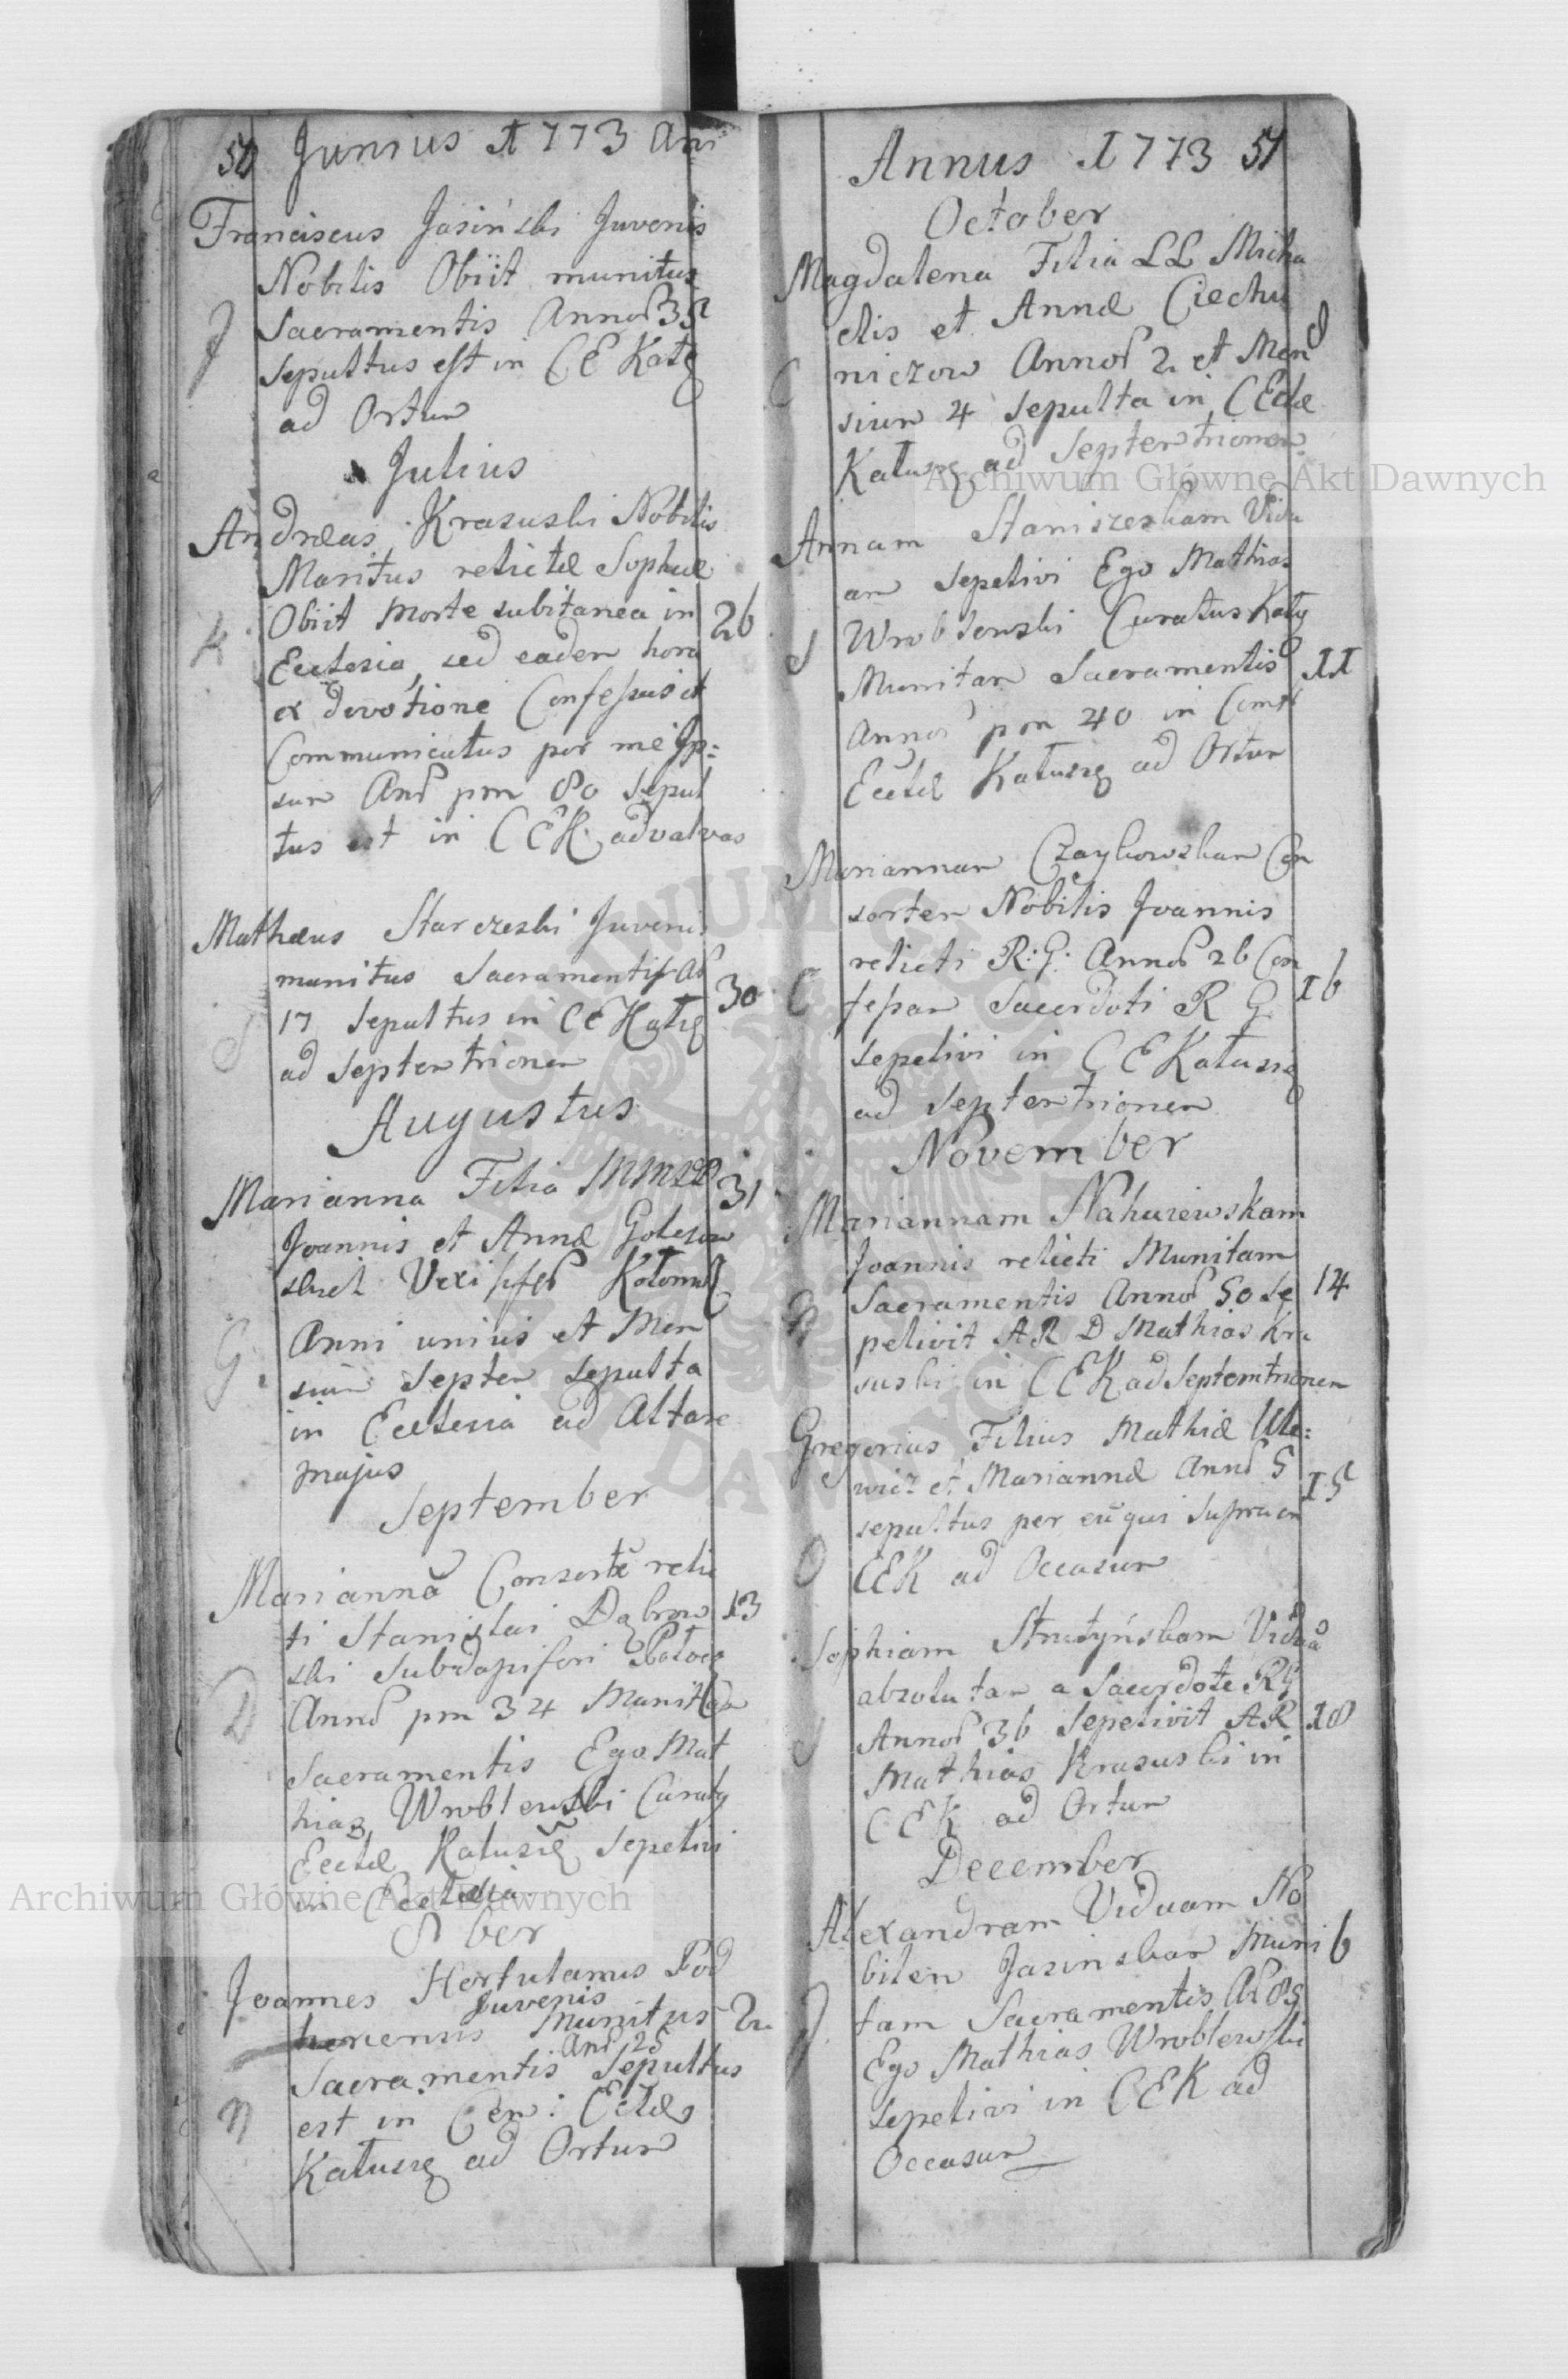 50 Junius 1773 Ani
Franciscus Jasiński Juvenis
Nobilis Obiit munitus
J Sacramentis Annor 35
sepultus est in CE Katę
ad Ortum
Julius
Andræas Krasuski Nobilis
Maritus relictæ Sophiæ
Obiit Morte subitanea in 26
K Ecclesia, sed eadem hora
ex devotione Confessus et
Communicatus per me Ip:
sum Anor pm 80 Sepul
tus est in CEK ad valvas
Mathæus Starczeski Juvenis
munitus Sacramentis Ar
17 Sepultus in CE Kałę 30
S ad Septentrionem
Augustus
Marianna Filia MM 31
Joannis et Annæ Golesow
skich Vexi Kołom
G Anni unius et Men
sium Septem Sepulta
in Ecclesia ad Altare
majus
September
Mariannã Consortẽ reli
ti Stanislai Dąbrow 13
ski Subdapiferi
D Annor pm 34 Munitam
Sacramentis Ego Mat
hias Wroblewski Curatg
Eccłæ Kałusię Sepelivi
in Ecclesia
8 ber
Joannes Hortulanus Pod
Juvenis
Munitus 2
Anor 25
Sacramentis Sepultus
est in Cem: Ecclæ
Kałuszę ad Ortum
Annus 1773 51
October
Magdalena Filia LL Micha
elis et Annæ Ciechu
C niczow Annor 2 et Men
sium 4 sepulta in C Eclæ
Kałuszę ad Septentrionem
Annam Staniszeskam Vidu
am sepelivi Ego Mathias
S Wroblewski Curatus Kałę
Munitam Sacramentis 11
Annor pm 40 in Cemt
Eccłæ Kałuszę ad Ortum
Mariannam Czaykowskam Con
sortem Nobilis Joannis
relicti R: G: Annor 26 Con
C fessam Sacerdoti R G 16
sepelivi in C E Kałuszę
ad Septentrionem
November
Mariannam Nahujewskam
Joannis relicti Munitam
N Sacramentis Annor 50 se 14
pelivit A R D Mathias Kra
suski in C E K ad Septemtrionem
Gregorius Filius Mathiæ Ule:
wicz et Mariannæ Annor 5 15
sepultus per eũ qui supra in
O CEK ad Occasum
Sophiam Strutyńskam Viduã
absolutam a Sacerdote RG
S Annor 36 Sepelivit A R 18
Mathias Krasuski in
C E K ad Ortum
December
Alexandram Viduam No
bilem Jasinskam Muni 6
J tam Sacramentis Ar 85
Ego Mathias Wroblewski
sepelivi in C E K ad
Occasum
Archiwum Główne Akt Dawnych
Archiwum Główne Akt Dawnych